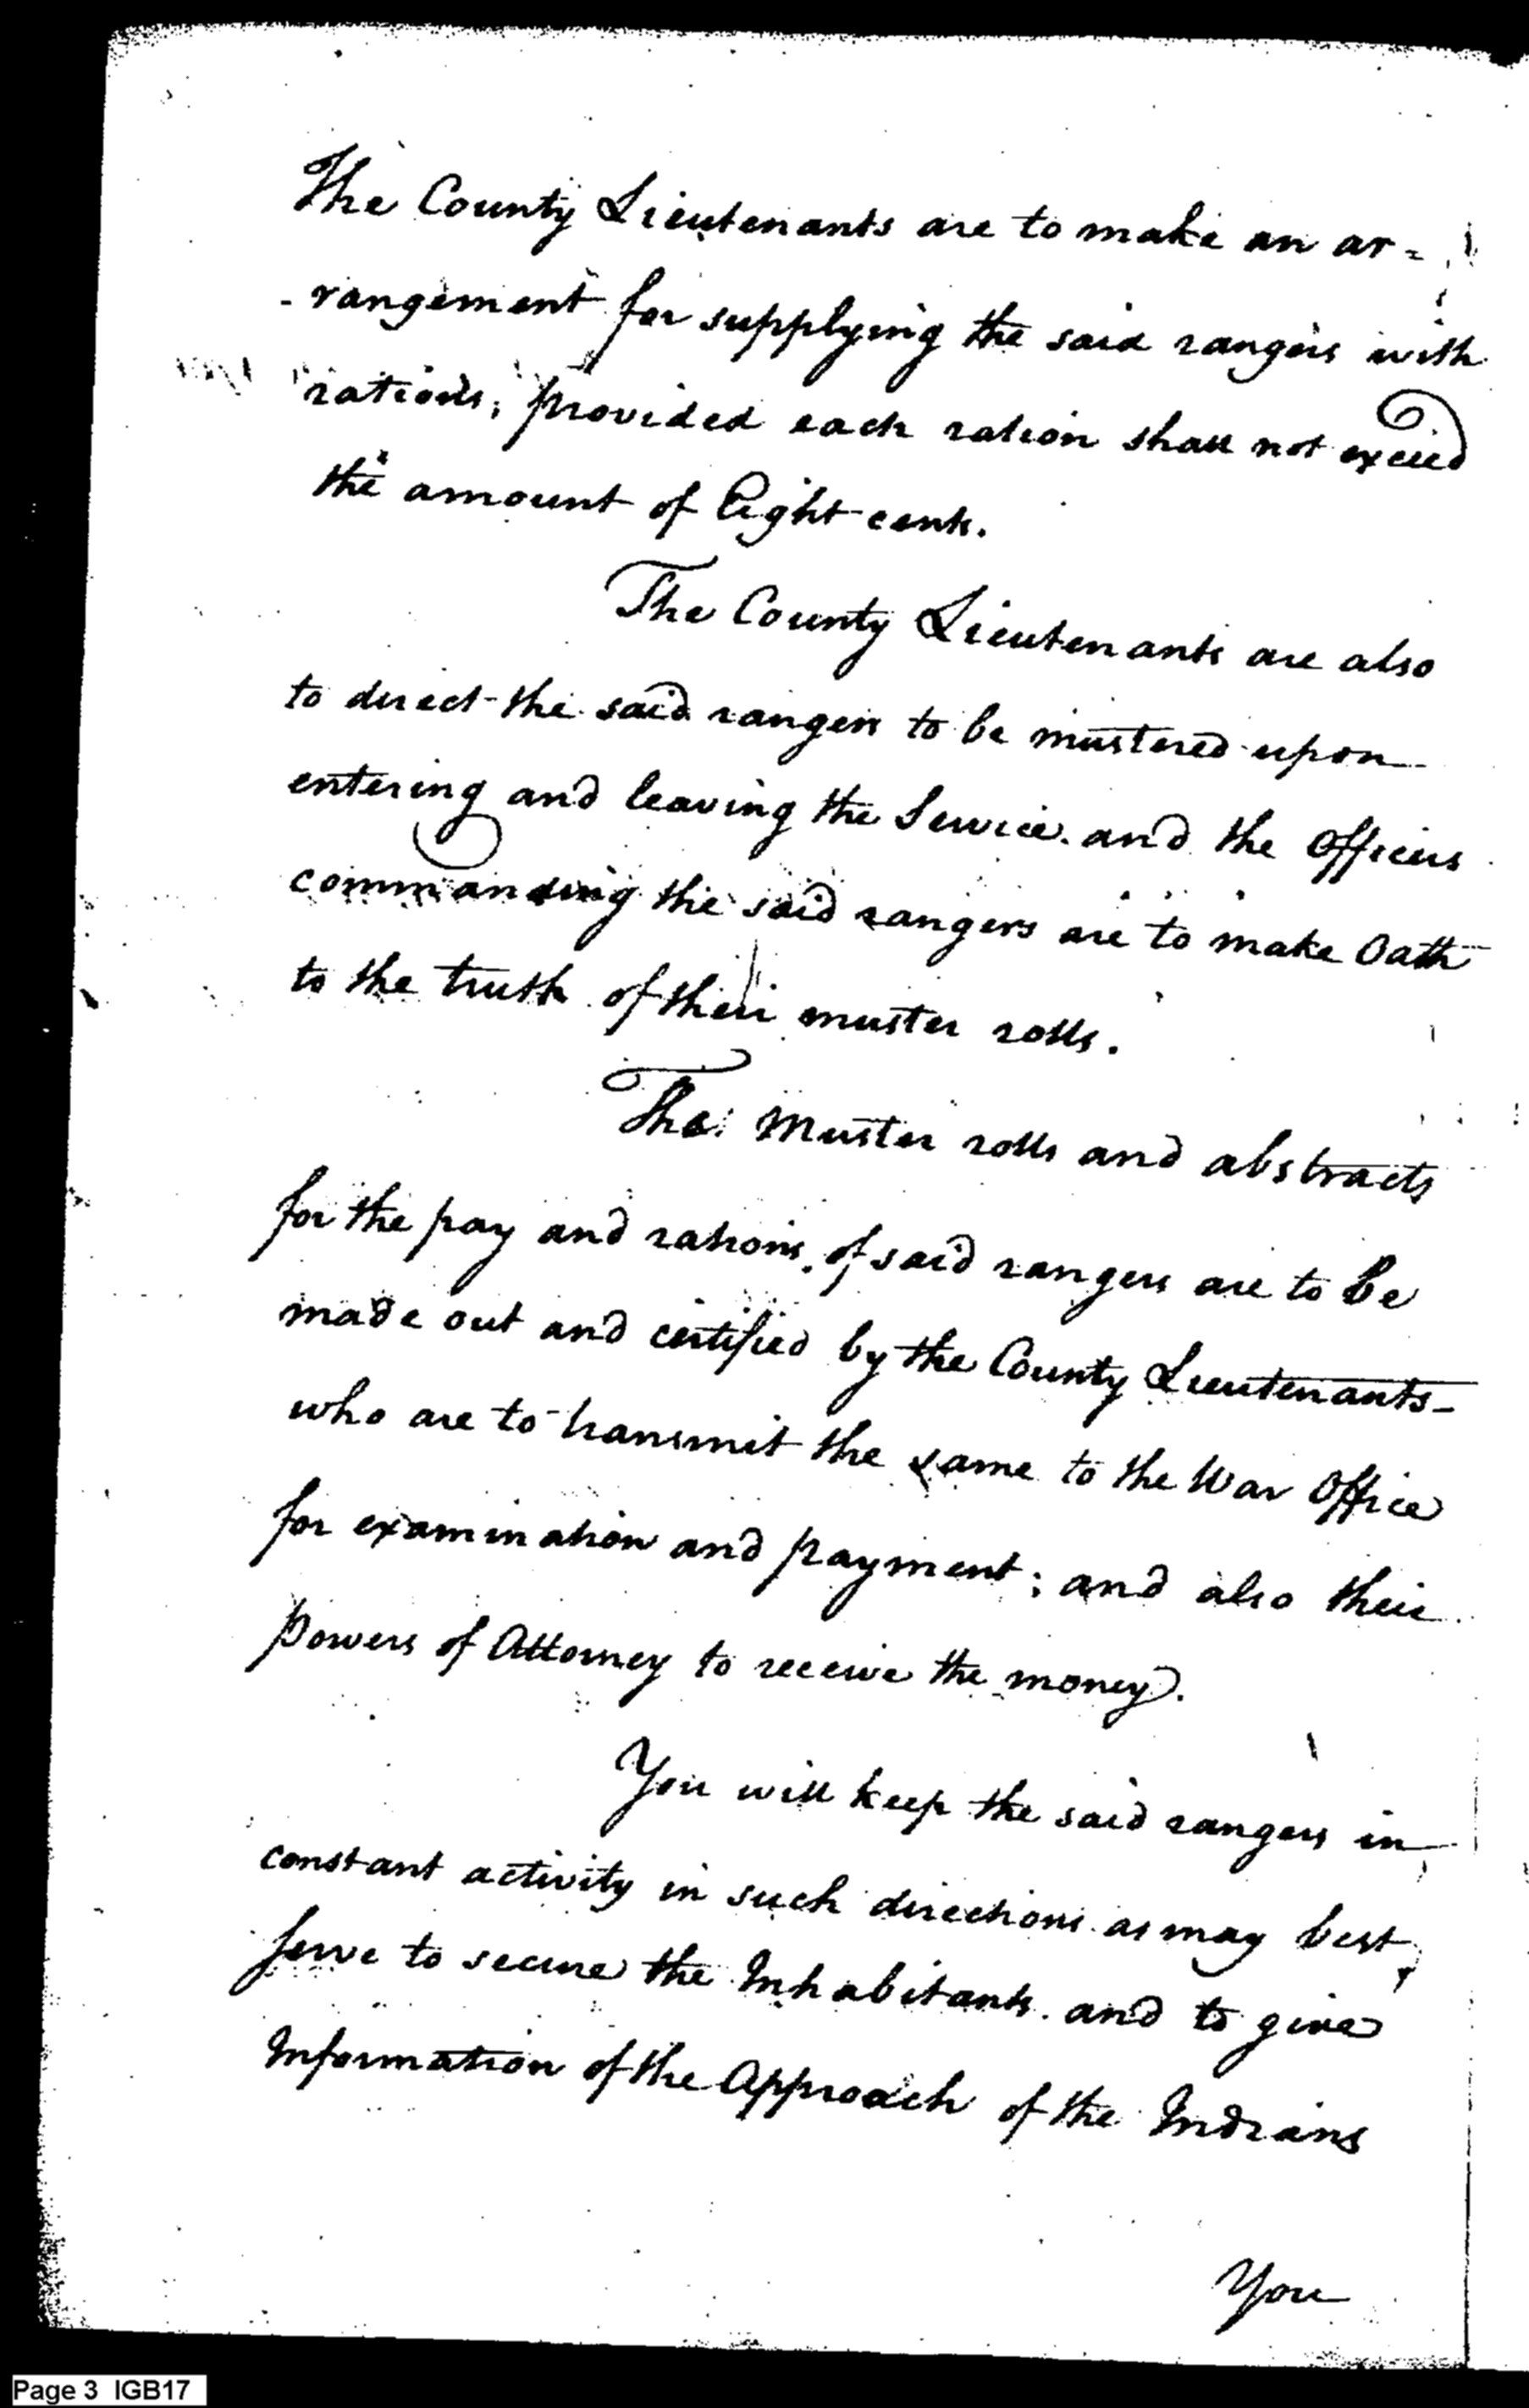 The County Lieutenants are to make an ar=
-rangement for supplying the said rangers with
rations, provided each ration shall not exceed
the amount of Eight cents.
The County Lieutenants are also
to direct the said rangers to be mustered upon
entering and leaving the Service. and the Officers
commanding the said rangers are to make Oath
to the truth of their muster rolls.
The Muster rolls and abstracts
for the pay and rations of said rangers are to be
made out and certified by the County Lieutenants-
who are to transmit the same to the War Office
for examination and payment; and also their
powers of Attorney to receive the money.
You will keep the said rangers in
constant activity in such directions as may best
serve to secure the Inhabitants. and to give
Information of the Approach of the Indians
You
Page 3 IGB17